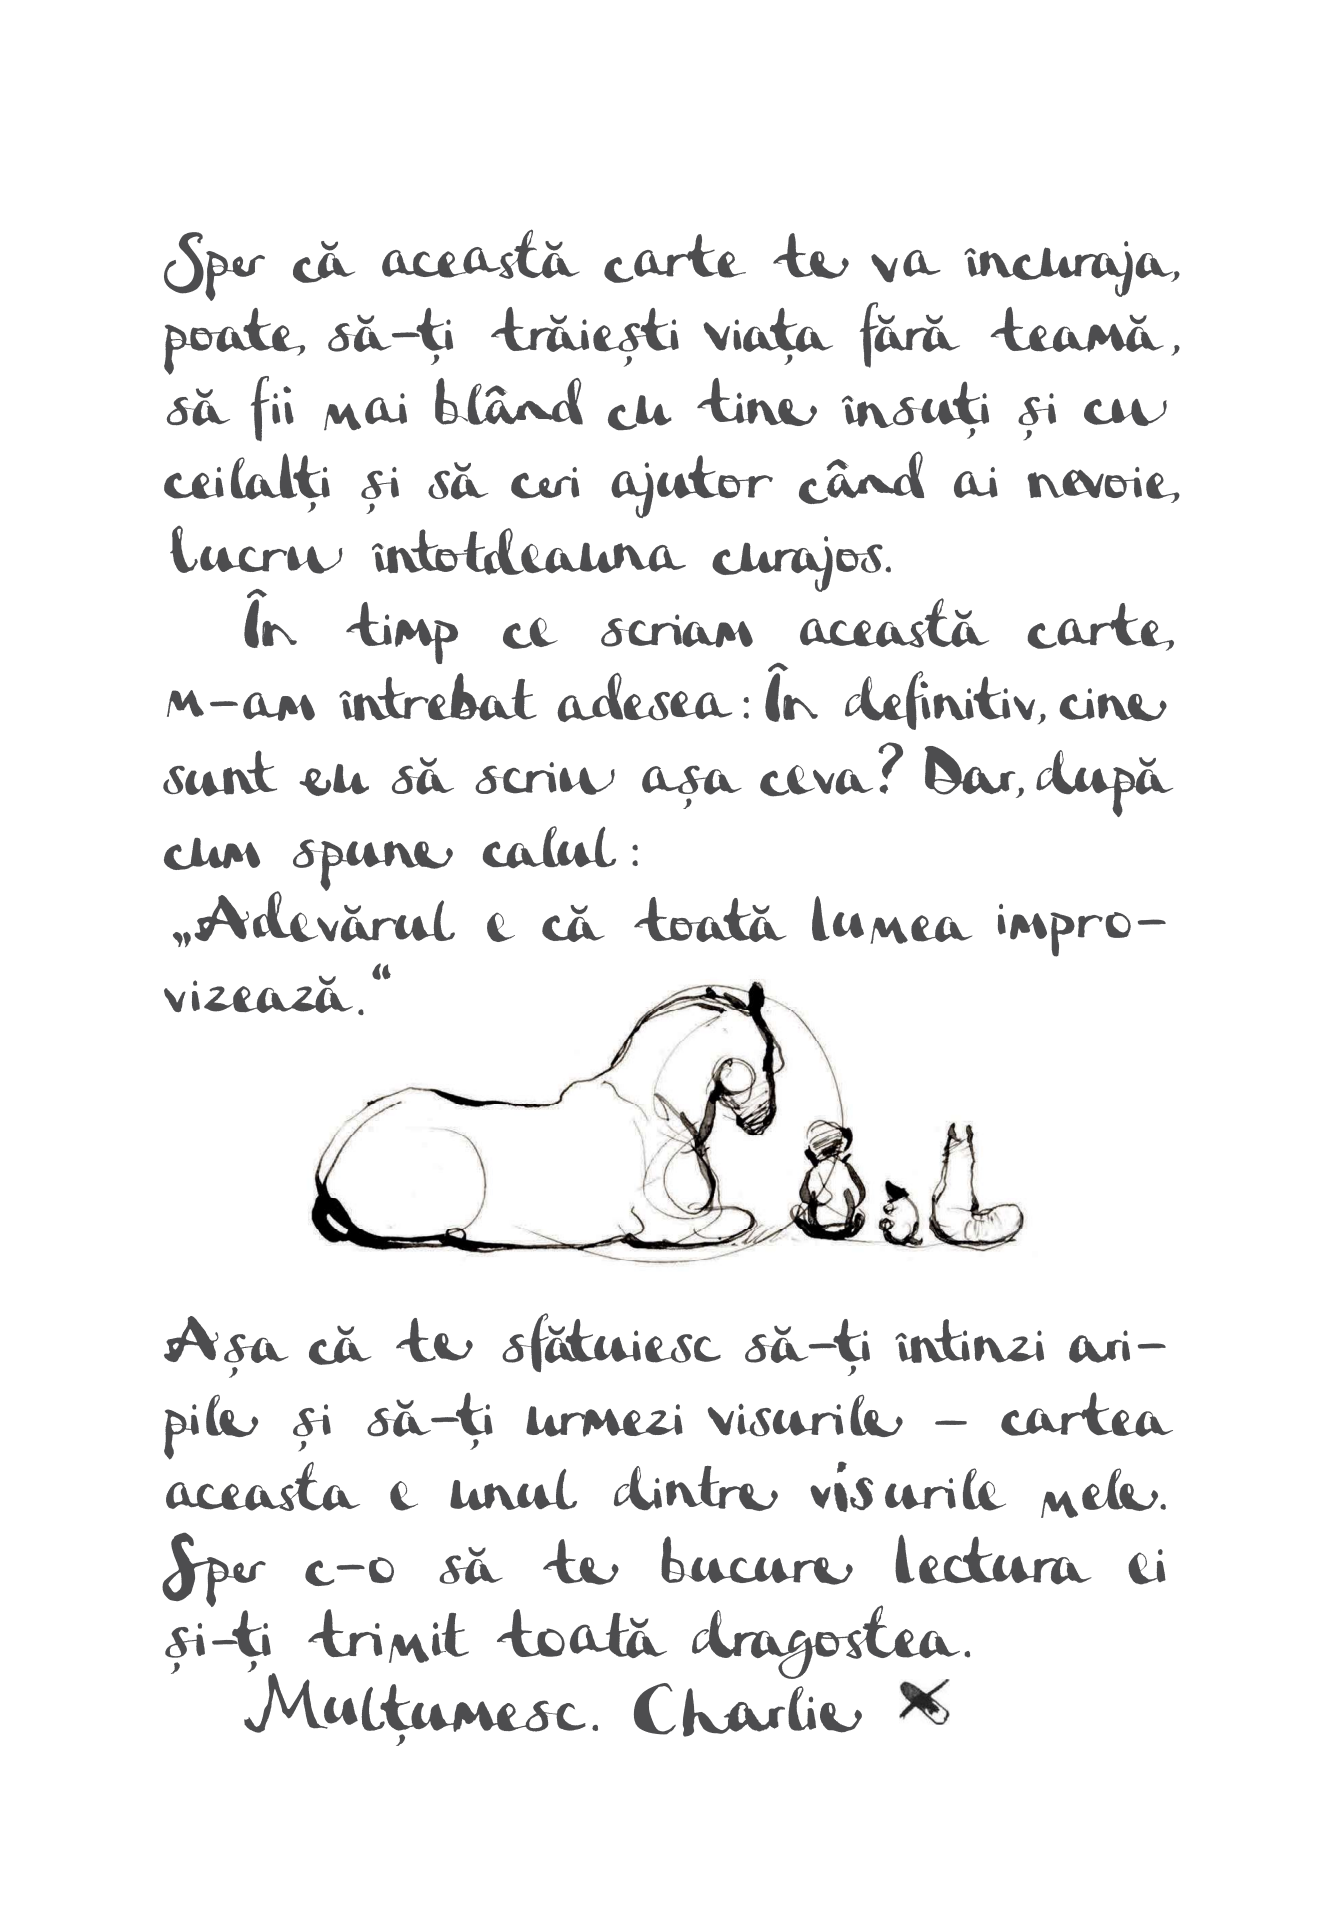 Sper că această carte te va încuraja,
poate, să-ți trăiești viața fără teamă,
să fii mai blând cu tine însuți și cu
ceilalți și să ceri ajutor când ai nevoie,
lucru întotdeauna curajos.
În timp ce scriam această carte,
m-am întrebat adesea: În definitiv, cine
sunt eu să scriu așa ceva? Dar, după
cum spune calul:
„Adevărul e că toată lumea impro-
vizează.“
Așa că te sfătuiesc să-ți întinzi ari-
pile și să-ți urmezi visurile – cartea
aceasta e unul dintre visurile mele.
Sper c-o să te bucure lectura ei
și-ți trimit toată dragostea.
Mulțumesc. Charlie x